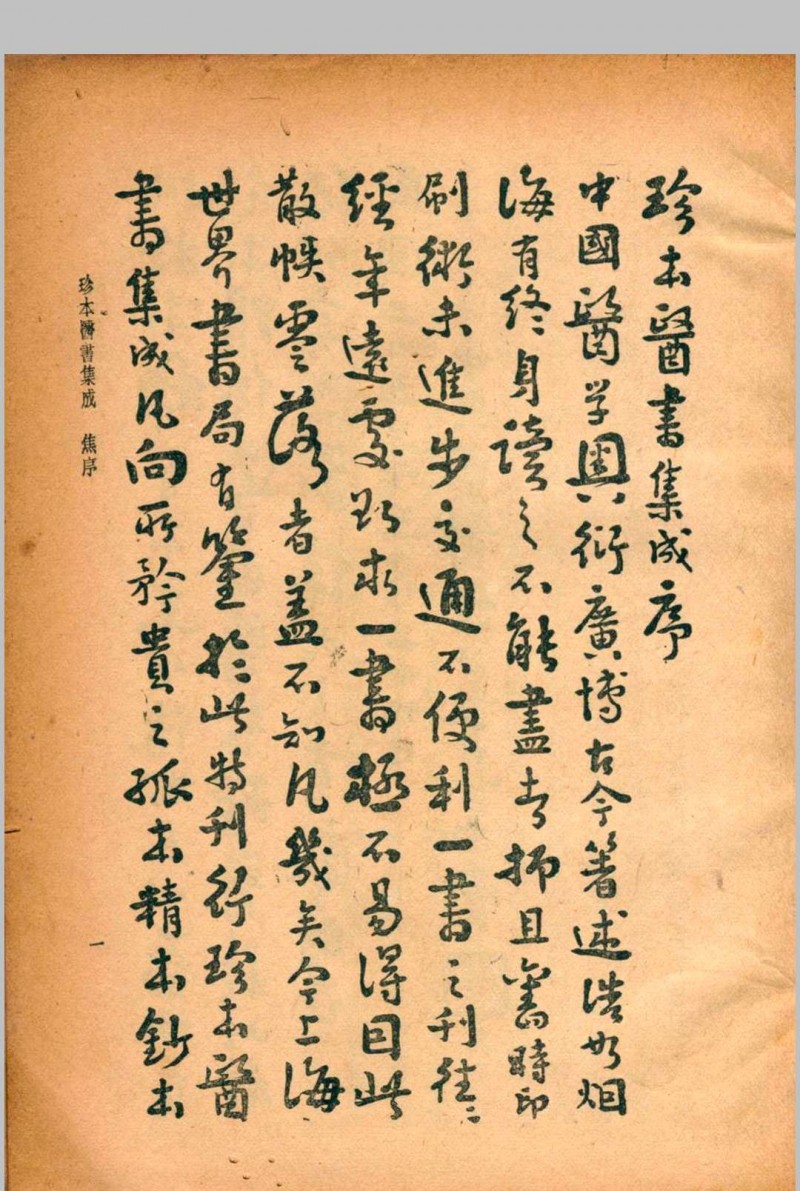 珍本醫書集成序
中國醫學輿衍廣博古今著述浩如烟
海有終身讀之不能盡者抑且舊時印
刷術未進步交通不便利一書之刊往〻
經年遠處欲求一書極不易得因此
散帙零落者蓋不知凡幾矣今上海
世界書局有鑒於此特刊行珍本醫
書集成凡向所矜貴之孤本精本鈔本
珍本醫書集成 焦序
一